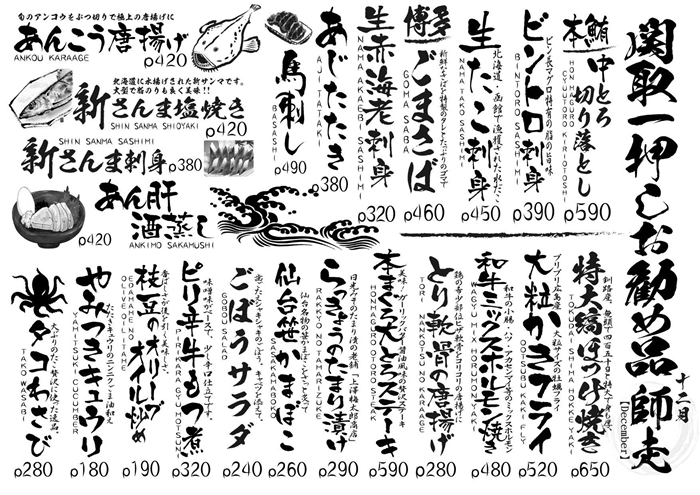 関取一押しお勧め品 師走
十二月
【December】
本鮪
中とろ
切り落とし
HON MAGURO
CYUUTORO KIRIOTOSHI
p590
ビントロ刺身
ビン長マグロ特有の脂の旨味
BINTORO SASHIMI
p390
生たこ刺身
北海道・函館で漁獲された水だこ
NAMA TAKO SASHIMI
p450
博多
ごまさば
GOMA SABA
p460
生赤海老刺身
NAMA AKAEBI SASHIMI
p320
あじたたき
AJI TATAKI
p380
馬刺し
BASASHI
p490
旬のアンコウをぶつ切りで極上の唐揚げに
あんこう唐揚げ
ANKOU KARAAGE
p420
北海道に水揚げされた新サンマです。
大型で脂のりも良く美味!!
新さんま塩焼き
SHIN SANMA SHIOYAKI
p420
SHIN SANMA SASHIMI
新さんま刺身
p380
あん肝
酒蒸し
ANKIMO SAKAMUSHI
p420
特大縞ほっけ焼き
TOKUDAI SHIMA HOKKE YAKI
p650
大粒かきフライ
OOTSUBU KAKI FLY
p520
和牛ミックスホルモン焼き
WAGYU MIX HORUMON YAKI
p480
とり軟骨の唐揚げ
TORI NANKOTSU NO KARAAGE
p280
本まぐろ大とろステーキ
HONMAGURO OTORO STEAK
p590
らっきょうのたまり漬け
RAKKYO NO TAMARIZUKE
p290
仙台笹かまぼこ
SASAKAMABOKO
p260
ごぼうサラダ
GOBOU SALAD
p240
ピリ辛牛もつ煮
PIRIKARA GYU MOTSUNI
p320
枝豆のオリーブオイル炒め
EDAMAME NO
OLIVEOIL ITAME
p190
やみつきキュウリ
YAMITSUKI CUCUMBER
p180
タコわさび
TAKO WASABI
p280